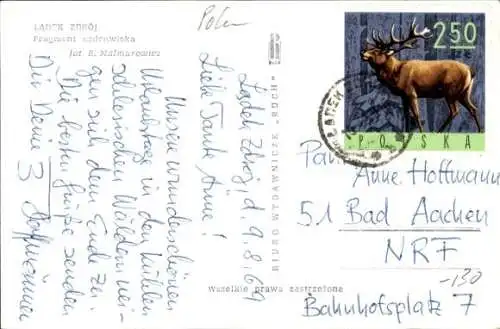 LĄDEK ZDRÓJ
Fragment uzdrowiska
fot. E. Hartwig
Polen
Lądek Zdrój, d. 9.8.69
Liebe Tante Anne!
Unsere wunderschönen
Urlaubstage in den kühlen
schlesischen Wäldern nei-
gen sich dem Ende zu.
Die besten Grüße senden
Dir Deine 3
BIURO WYDAWNICZE „RUCH”
Wszelkie prawa zastrzeżone
2 50
POLSKA
LĄDEK
Pan
Anne Hoffmann
51 Bad Aachen
NRF
Bahnhofsplatz 7
-130